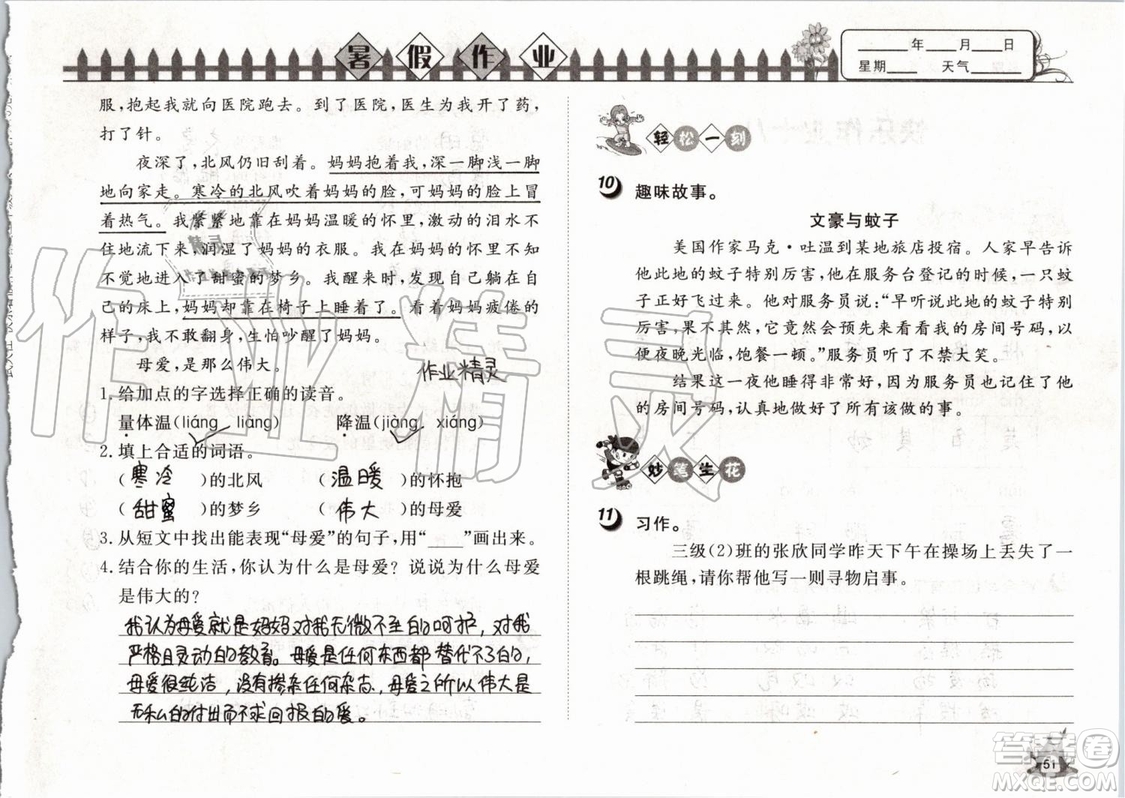 暑假作业
____年____月____日
星期____ 天气____
服，抱起我就向医院跑去。到了医院，医生为我开了药，
打了针。
夜深了，北风仍旧刮着。妈妈抱着我，一脚深一脚浅一脚
地向家走。寒冷的北风吹着妈妈的脸，可妈妈的脸上冒
着热气。我紧紧地靠在妈妈温暖的怀里，激动的泪水不
住地流下来，润湿了妈妈的衣服。我在妈妈的怀里不知
不觉地进入了甜蜜的梦乡。我醒来时，发现自己在自
己的床上，妈妈却靠在椅子上睡着了。看着妈妈疲倦的
样子，我不敢翻身，生怕吵醒了妈妈。
母爱，是那么伟大。
作业精灵
1. 给加点的字选择正确的读音。
量体温（liáng liàng） 降温（jiàng xiáng）
2. 填上合适的词语。
（寒冷）的北风 （温暖）的怀抱
（甜蜜）的梦乡 （伟大）的母爱
3. 从短文中找出能表现“母爱”的句子，用“____”画出来。
4. 结合你的生活，你认为什么是母爱？说说为什么母爱
是伟大的？
我认为母爱就是妈妈对我无微不至的呵护，对我
严格且灵动的教育。母爱是任何东西都替代不了的
母爱很纯洁，没有掺杂任何杂志，母爱之所以伟大是
无私的付出而不求回报的爱。
轻松一刻
10 趣味故事。
文豪与蚊子
美国作家马克·吐温到某地旅店投宿。人家早告诉
他此地的蚊子特别厉害，他在服务台登记的时候，一只蚊
子正好飞过来。他对服务员说：“早听说此地的蚊子特别
厉害，果然如此，它竟然会预先来看看我的房间号码，以
便夜晚光临，饱餐一顿。”服务员听了不禁大笑。
结果这一夜他睡得非常好，因为服务员也记住了他
的房间号码，认真地做好了所有该做的事。
妙笔生花
11 习作。
三级（2）班的张欣同学昨天下午在操场上丢失了一
根跳绳，请你帮他写一则寻物启事。
作业精灵
答案圈
MXQE.COM
51